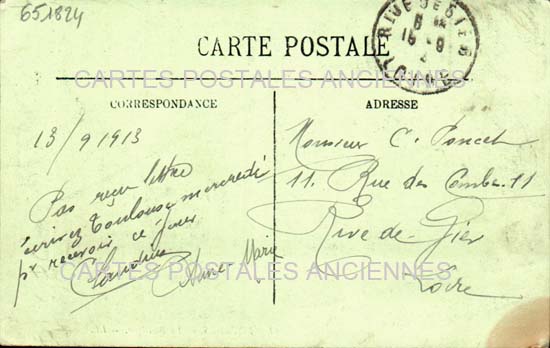 651824
RIVE DE GIER
CARTE POSTALE
CARTES POSTALES ANCIENNES
CORRESPONDANCE
ADRESSE
13/9 1913
Pas reçu lettre
écrivez Toulouse mercredi
pr recevoir ce jour
Anne Marie
Monsieur C. Poncet
11. Rue des Combes. 11
Rive-de-Gier
Loire
CARTES POSTALES ANCIENNES